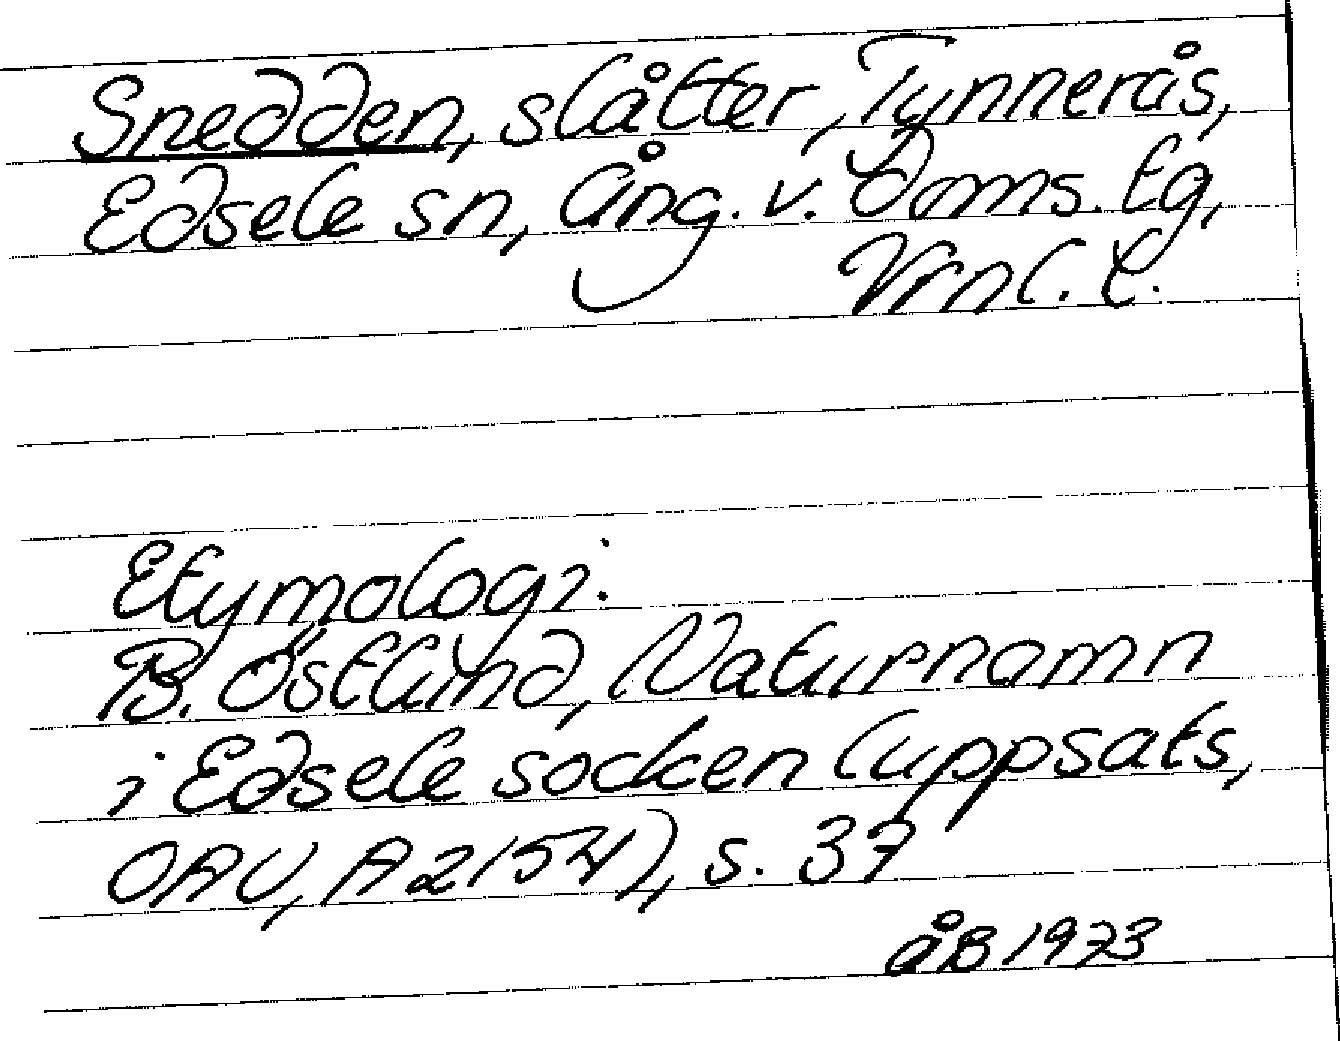 Snedden, slåtter, Tynnerås,
Edsele sn, Ång. v. Doms. lg,
Vrnl. l.
Etymologi:
B. Östlund, Naturnamn
i Edsele socken (uppsats,
OAU, A 2154), s. 37
åB 1973